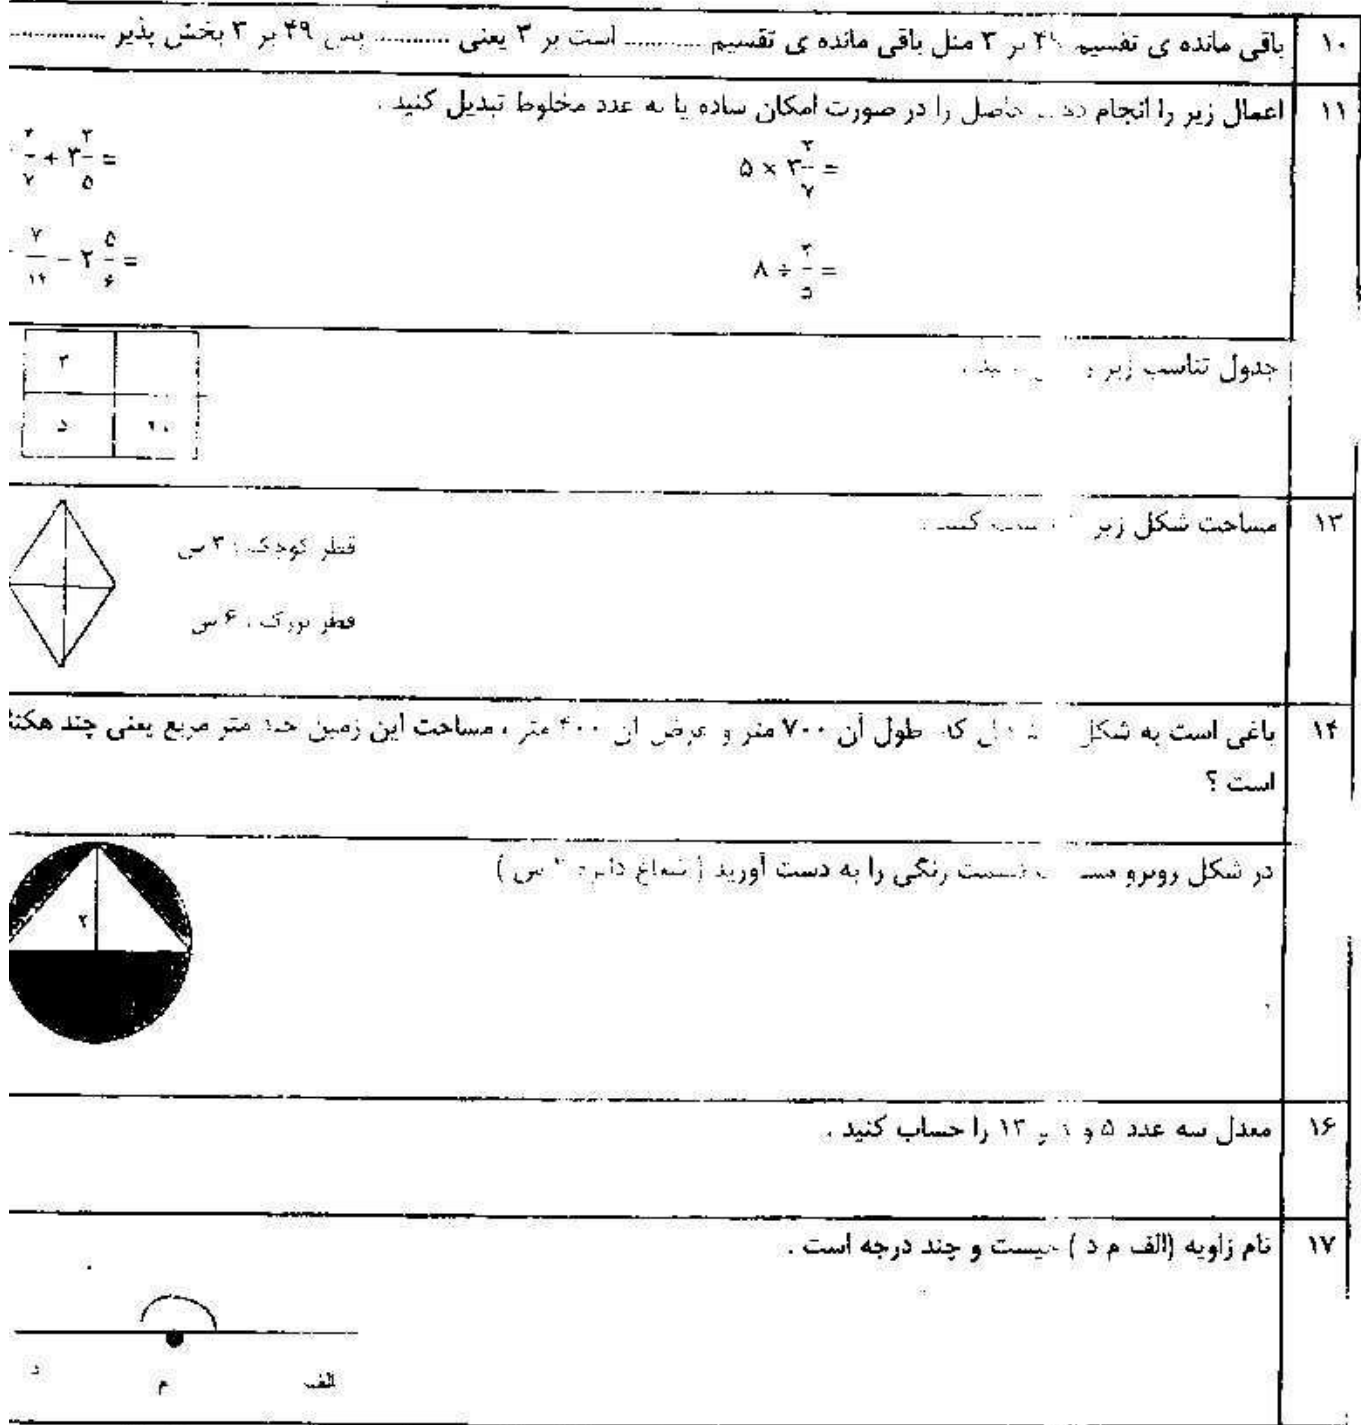 ۱۰ باقی مانده ی تقسیم ۴۹ بر ۳ مثل باقی مانده ی تقسیم ........... است بر ۳ یعنی ........... پس ۴۹ بر ۳ بخش پذیر ..............
۱۱ اعمال زیر را انجام حاصل را در صورت امکان ساده یا به عدد مخلوط تبدیل کنید .
۵ × ۳ ۲/۷ =
/۷ + ۳ ۲/۵ =
۸ ÷ /۵ =
۷/۱۲ − ۲ ۵/۶ =
جدول تناسب زیر
۳
۵ ۲۰
۱۳ مساحت شکل زیر کنید
قطر کوچک : ۳ س
قطر بزرگ : ۶ س
۱۴ باغی است به شکل که طول آن ۷۰۰ متر و عرض آن ۴۰۰ متر ، مساحت این زمین چند متر مربع یعنی چند
است ؟
در شکل روبرو قسمت رنگی را به دست آورید ( شعاع دایره ۲ س )
۲
۱۶ معدل سه عدد ۵ و و ۱۳ را حساب کنید .
۱۷ نام زاویه (الف م د ) چیست و چند درجه است .
الف م د